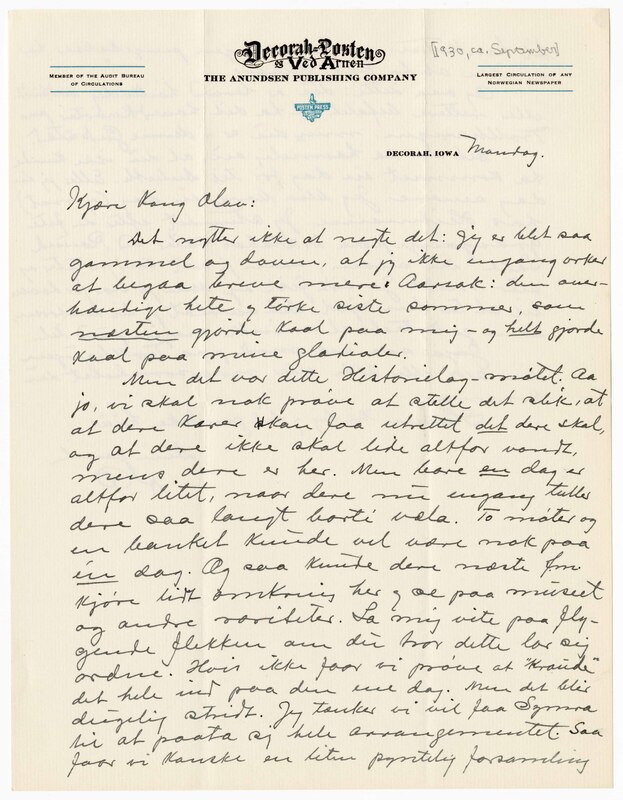 Decorah-Posten
& Ved Arnen
THE ANUNDSEN PUBLISHING COMPANY
[1930, ca. September]
MEMBER OF THE AUDIT BUREAU
OF CIRCULATIONS
LARGEST CIRCULATION OF ANY
NORWEGIAN NEWSPAPER
POSTEN PRESS
DECORAH, IOWA Mandag.
Kjære Kong Olav:
Det nytter ikke at negte det: Jeg er blet saa
gammel og doven, at jeg ikke engang orker
at begaa breve mere. Aarsak: den over-
hændige hete og tørke siste sommer, som
næsten gjorde kaal paa mig – og helt gjorde
kaal paa mine gladioler.
Men det var dette Historielag-møtet. Aa
jo, vi skal nok prøve at stelle det slik, at
at dere karer kan faa utrettet det dere skal,
og at dere ikke skal lide altfor vondt,
mens dere er her. Men bare en dag er
altfor litet, naar dere nu engang tuller
dere saa langt borti væla. To møter og
en banket kunde vel være nok paa
én dag. Og saa kunde dere næste fm
kjøre lidt omkring her og se paa museet
og andre rariteter. La mig vite paa fly-
gende flekken om du tror dette lar sig
ordne. Hvis ikke faar vi prøve at "kraude"
det hele ind paa den ene dag. Men det blir
dugelig stridt. Jeg tænker vi vil faa Symra
til at paata sig hele arrangementet. Saa
faar vi kanske en liten pyntelig forsamling